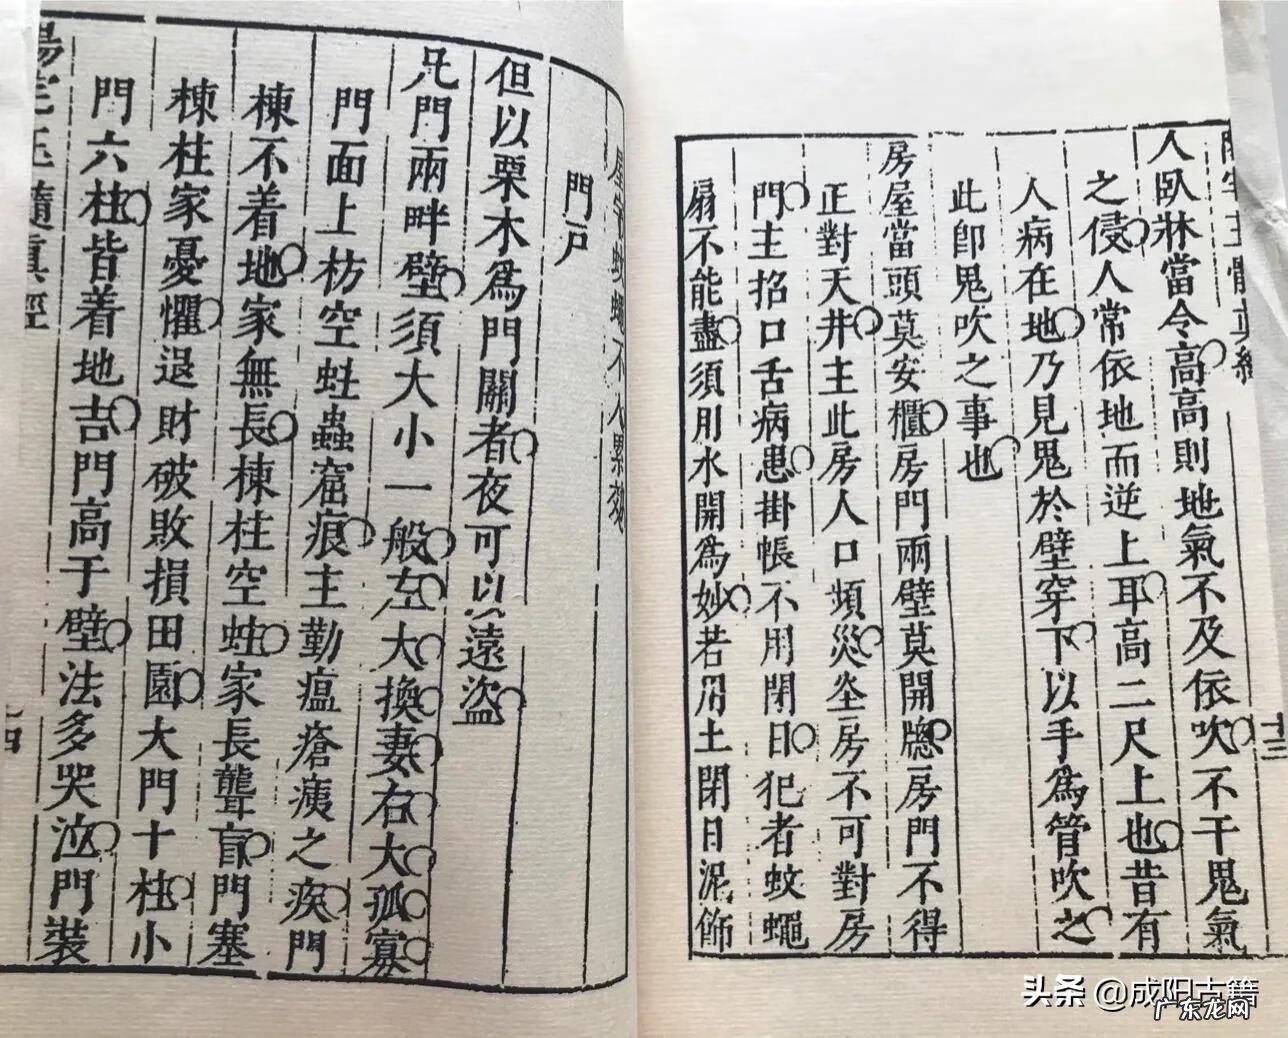 十三
人臥牀當令高高則地氣不及依吹不干鬼氣
之侵人常依地而逆上耳高二尺上也昔有
人病在地乃見鬼於壁穿下以手爲管吹之
此卽鬼吹之事也
房屋當頭莫安櫃房門兩壁莫開牕房門不得
正對天井主此房人口頻災坐房不可對房
門主招口舌病患掛帳不用閉日犯者蚊蠅
扇不能盡須用水開爲妙若用土閉日泥飾
屋宇蚊蠅不入累效
門戶
但以栗木爲門關者夜可以遠盜
凡門兩畔壁須大小一般左大換妻右大孤寡
門面上枋空蛀蟲窟痕主勤瘟瘡痍之疾門
棟不着地家無長棟柱空蛀家長聾盲門塞
棟柱家憂懼退財破敗損田園大門十柱小
門六柱皆着地吉門高于壁法多哭泣門裝
陽宅玉髓眞經
十四
头条 @成阳古籍
广东龙网